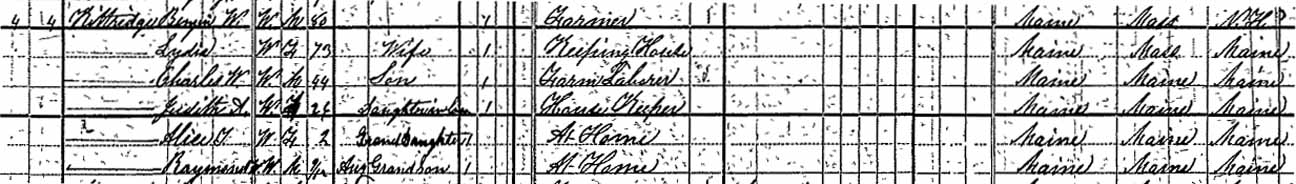 4 4 Kittredge Benjn W. W M 80 1 Farmer Maine Mass N.H.
Lydia W F 73 Wife 1 Keeping House Maine Mass Maine
Charles W. W M 44 Son 1 Farm Laborer Maine Maine Maine
A. W F Daughter in law 1 House Keeper Maine Maine Maine
Alice W F 2 Grand Daughter 1 At Home Maine Maine Maine
Raymond W M Aug Grandson 1 At Home Maine Maine Maine